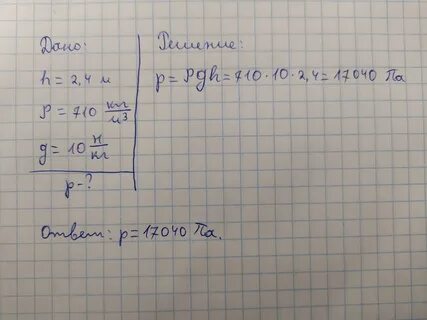 Дано:
h = 2,4 м
P = 710 кг/м³
g = 10 н/кг
p - ?
Решение:
p = Pgh = 710 · 10 · 2,4 = 17040 Па
Ответ: p = 17040 Па.